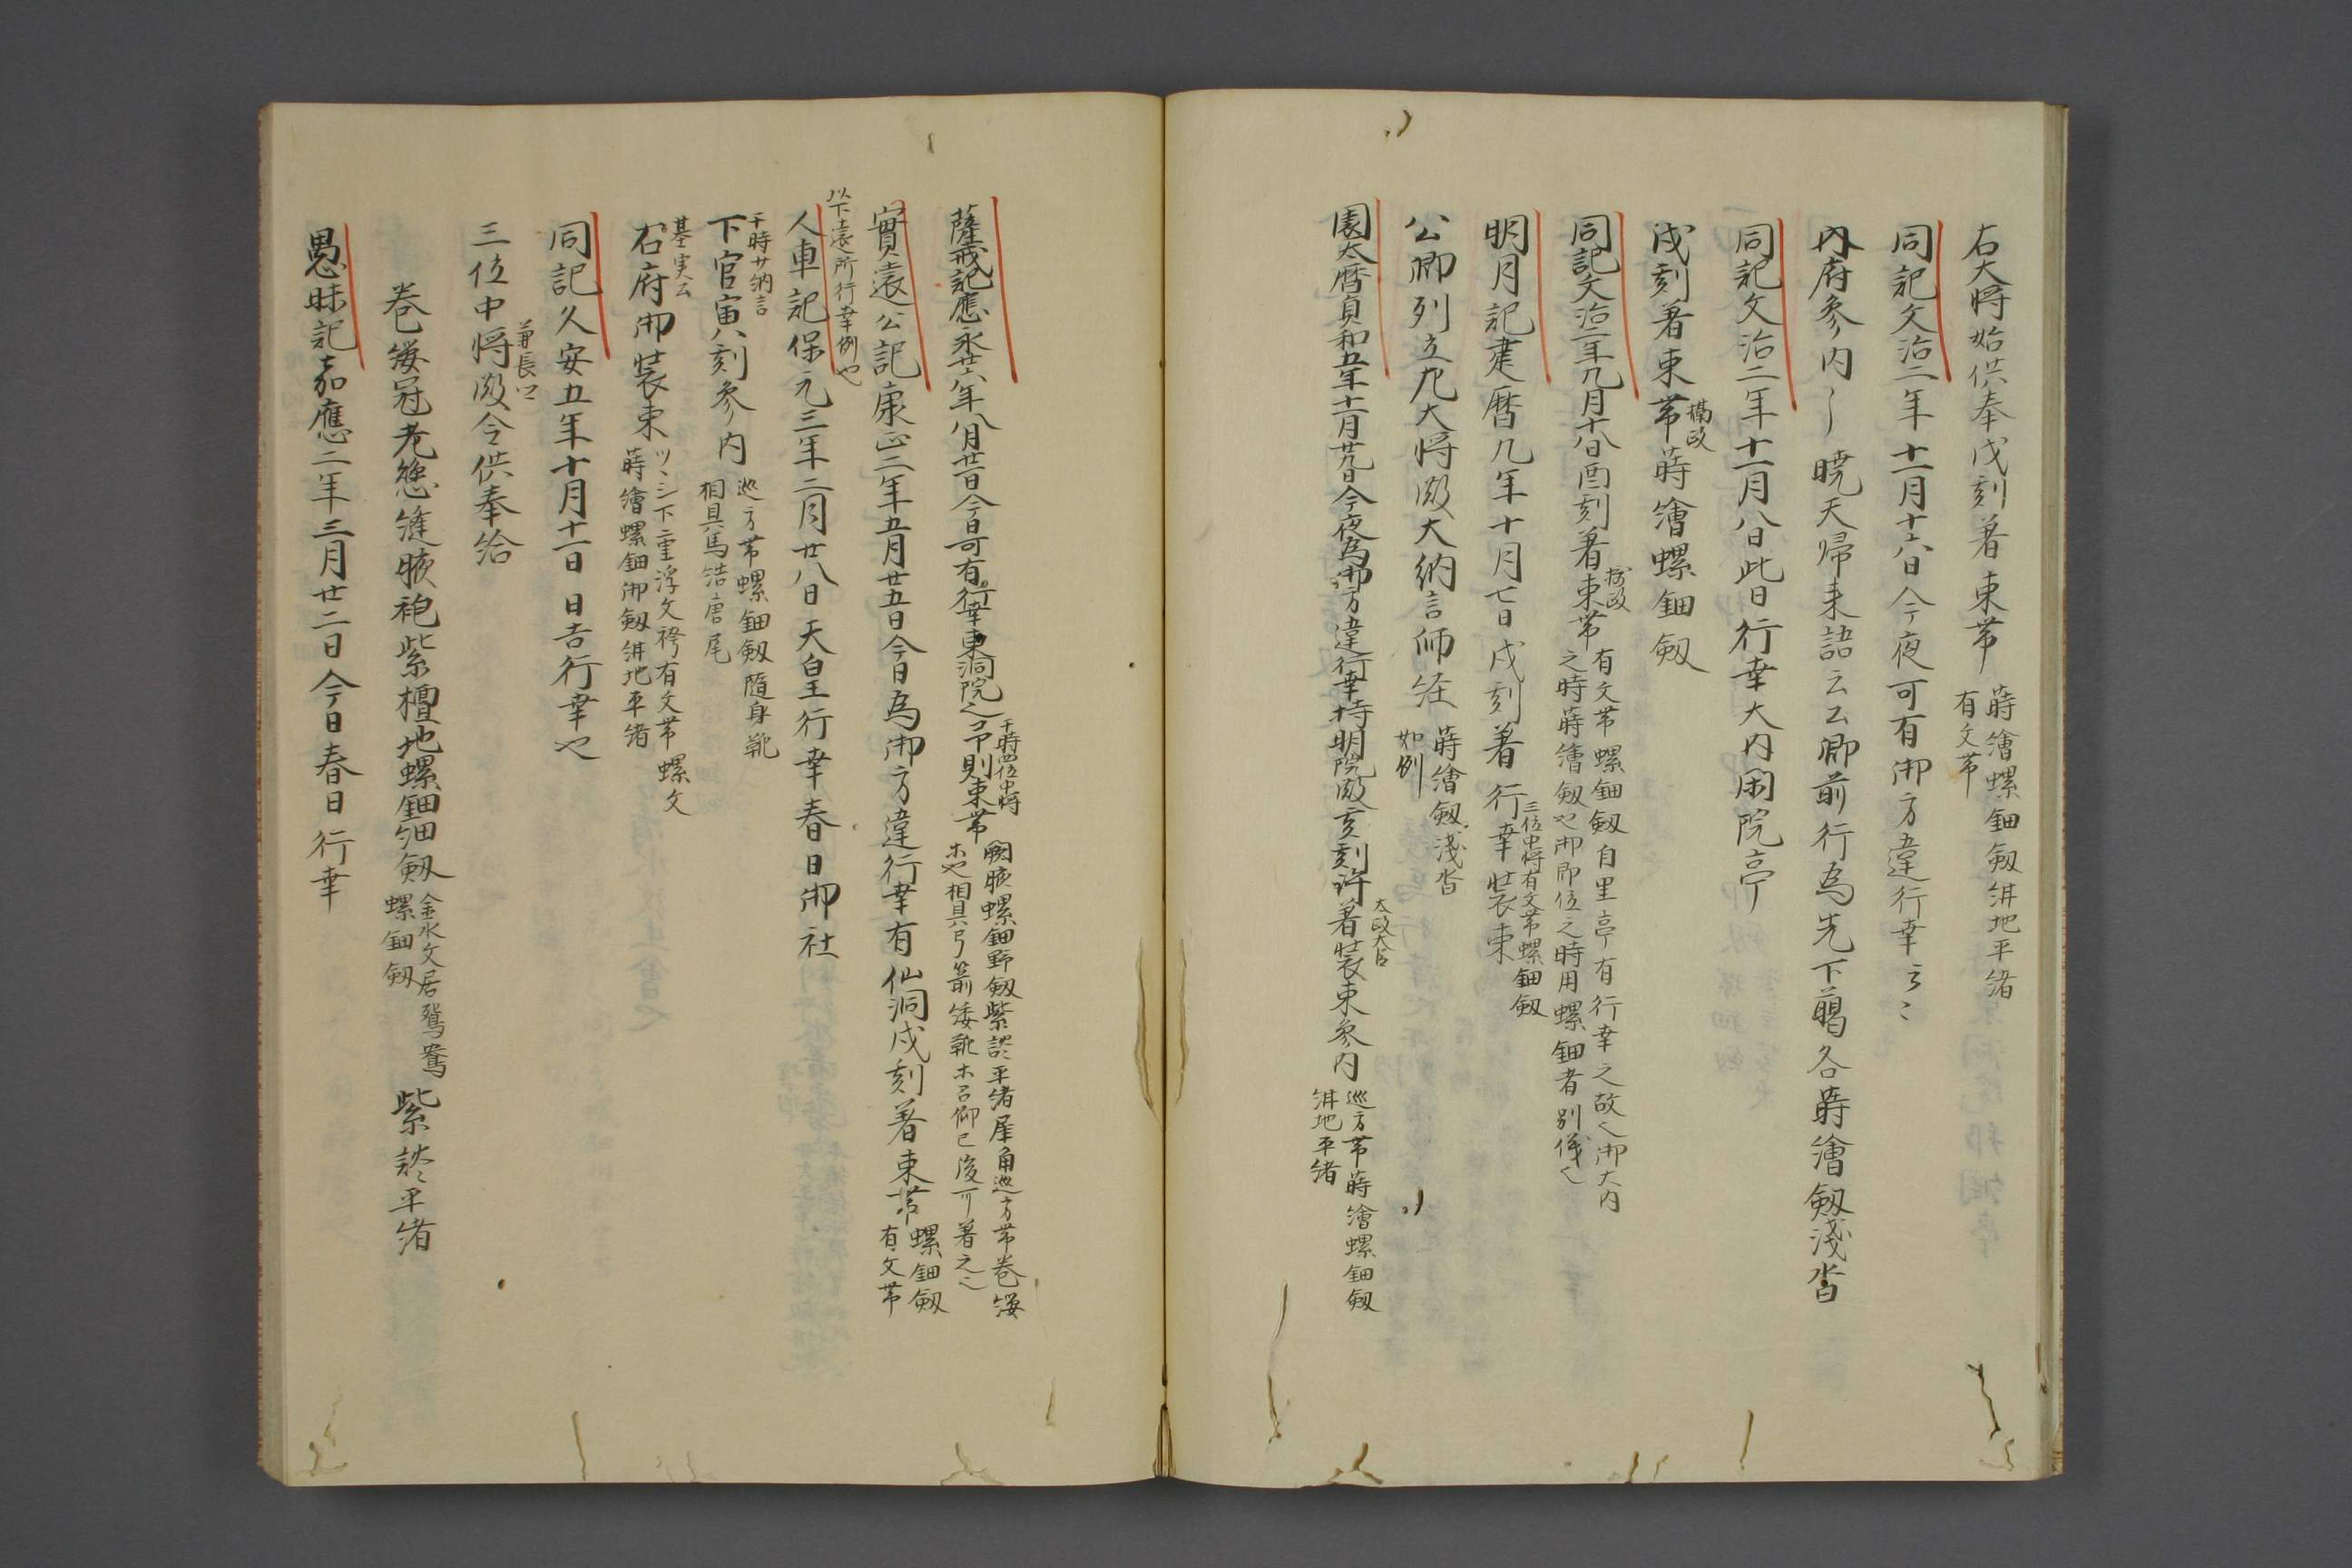 右大将始供奉戌刻著束帯蒔繪螺鈿剱紺地平緒
有文帯
同記文治二年十一月十六日今夜可有御方違行幸云々
内府参内〻暁天帰来語云公卿前行為先下﨟各蒔繪剱浅沓
同記文治二年十一月八日此日行幸大内閑院亭
戌刻著束帯蒔繪螺鈿剱
摂政
同記文治二年九月十八日酉刻著束帯有文帯螺鈿剱自里亭有行幸之故也御大内
摂政
之時蒔繪剱也御即位之時用螺鈿者別儀也
明月記建暦九年十月七日戌刻著行幸装束
三位中将有文帯螺鈿剱
公卿列立左大将殿大納言師経蒔繪剱浅沓
如例
園太暦貞和五年十二月廿九日今夜為御方違行幸持明院殿亥刻許著装束参内巡方帯蒔繪螺鈿剱
太政大臣
紺地平緒
薩戒記應永廿六年八月廿一日今日可有行幸東洞院也予則束帯闕腋螺鈿野剱紫談平緒犀角巡方帯巻纓
于時四位中将
木也相具弓箭矮靴木召仰已後可著之也
實遠公記康正二年五月廿五日今日為御方違行幸有仙洞戌刻著束帯螺鈿剱
有文帯
以下遠所行幸例也
人車記保元三年二月廿八日天皇行幸春日御社
于時廿納言
下官寅八刻参内巡方帯螺鈿剱隨身靴
相具馬結唐尾
基実公
右府御装束ツヽシ下重浮文袴有文帯螺文
蒔繪螺鈿御剱紺地平緒
同記久安五年十月十一日日吉行幸也
三位中将殿令供奉給
兼長公
巻纓冠老懸縫腋袍紫檀地螺鈿細剱金水文居鴛鴦紫談平緒
螺鈿剱
愚昧記嘉應二年三月廿二日今日春日行幸